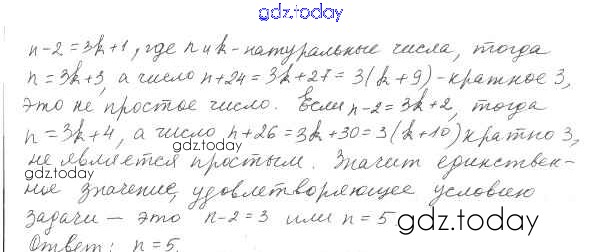 gdz.today
n-2=3k+1, где n и k - натуральные числа, тогда
n=3k+3, а число n+24=3k+27=3(k+9) - кратное 3,
это не простое число. Если n-2=3k+2, тогда
n=3k+4, а число n+26=3k+30=3(k+10) кратно 3,
gdz.today
не является простым. Значит единствен-
gdz.today
ное значение, удовлетворяющее условию
задачи — это n-2=3 или n=5
gdz.today
Ответ: n=5.